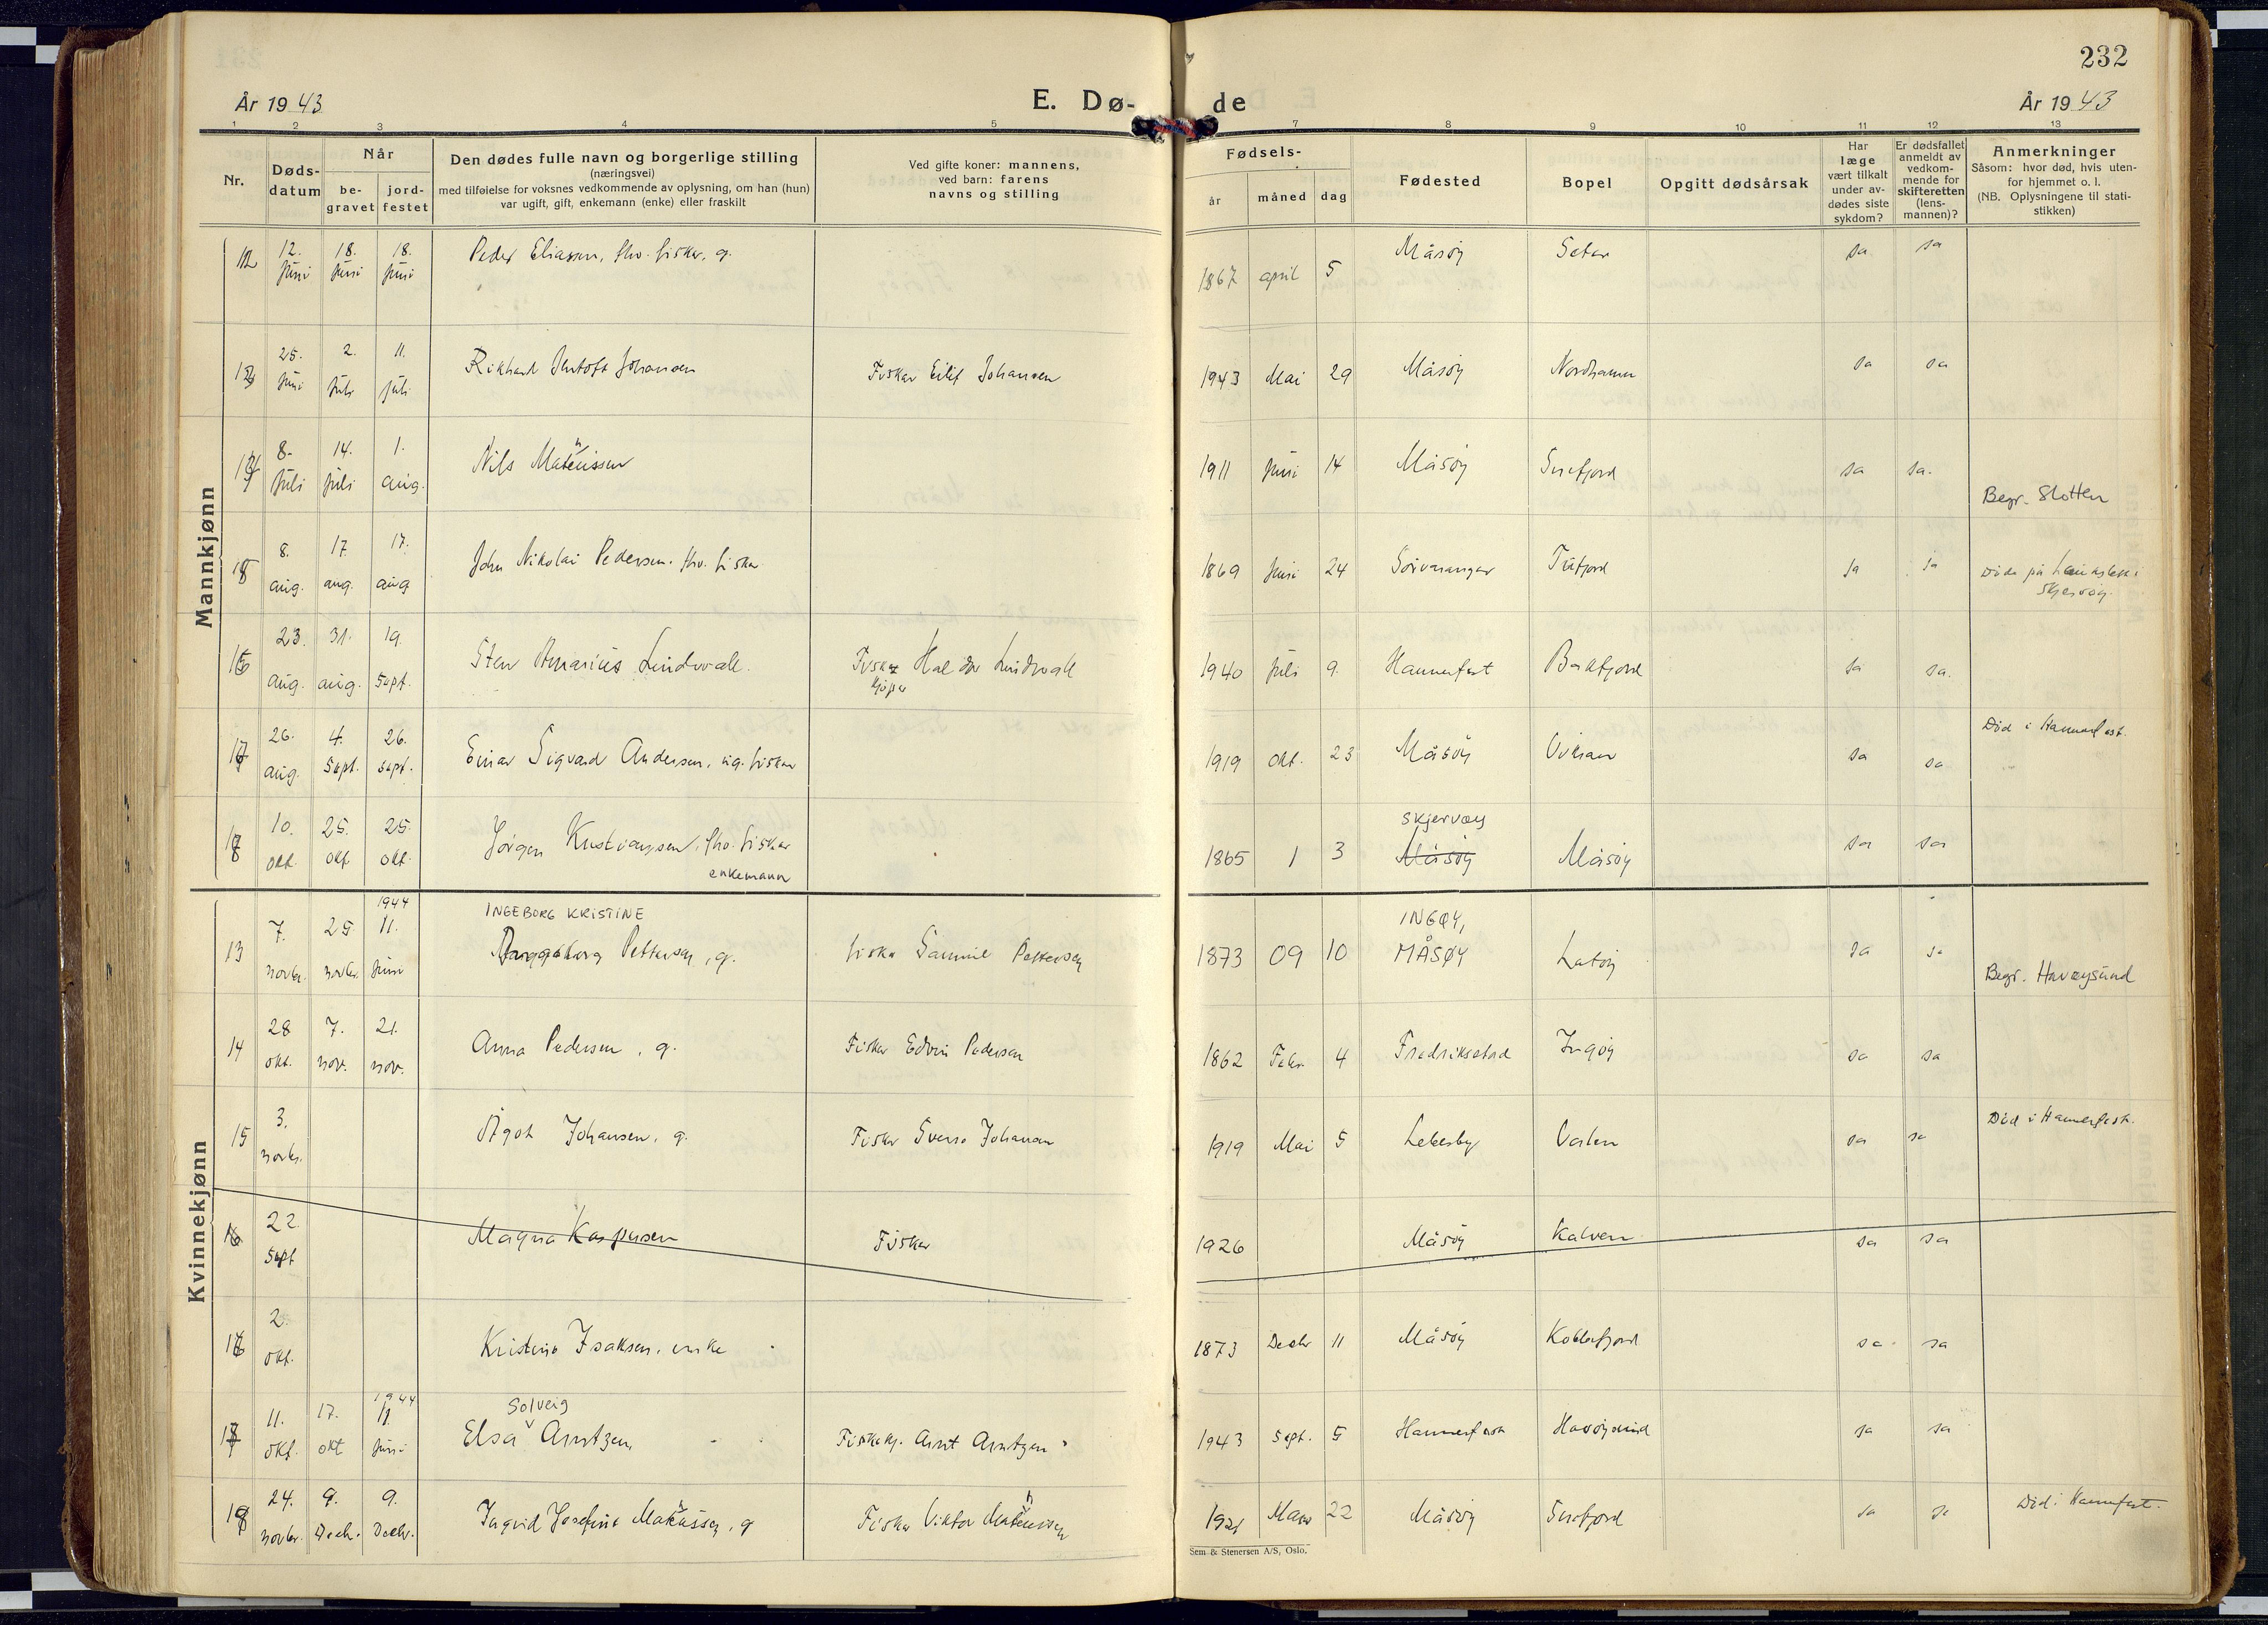 232
År 1943
E. Dø-
de
År 1943
1 2 3 4 5 7 8 9 10 11 12 13
Nr.
Døds-
datum
Når
be-
gravet
jord-
festet
Den dødes fulle navn og borgerlige stilling
(næringsvei)
med tilføielse for voksnes vedkommende av oplysning, om han (hun)
var ugift, gift, enkemann (enke) eller fraskilt
Ved gifte koner: mannens,
ved barn: farens
navns og stilling
Fødsels-
år måned dag
Fødested
Bopel
Opgitt dødsårsak
Har
læge
vært tilkalt
under av-
dødes siste
sykdom?
Er dødsfallet
anmeldt av
vedkom-
mende for
skifteretten
(lens-
mannen)?
Anmerkninger
Såsom: hvor død, hvis uten-
for hjemmet o. l.
(NB. Oplysningene til stati-
stikken)
Mannkjønn
12 12. juni 18. juni 18. juni Peder Eliassen, fhv. fisker, g. 1867 april 5 Måsöy ja ja
13 25. juni 2. juli 11. juli Rikhard Jentoft Johansen Fisker Eilif Johansen 1943 Mai 29 Måsöy Nordhamn ja ja
14 8. juli 14. juli 1. aug. Nils 1911 juni 14 Måsöy Snefjord ja ja.
Begr. Slotten
15 8. aug. 17. aug. 17. aug John Nikolai Pedersen. fhv. fisker 1869 juni 24 Sörvaranger Tufjord ja ja
Skjervöy.
16 23. aug. 31. aug. 19. sept. Sten Lindvall. Halvdor Lindvall
kjöper
1940 juli 9. Hammerfest Bakfjord ja ja.
17 26. aug. 4. sept. 26. sept. Einar Sigvard Andersen, ug. fisker 1919 okt. 23 Måsöy ja ja
Död i Hammerfest.
18 10. okt. 25. okt. 25. okt. Jörgen Kristiansen, fhv. fisker
enkemann
1865 1 3
Skjervøy
Måsöy
Måsöy ja ja
Kvinnekjønn
1944
INGEBORG KRISTINE
13 7. novbr. 25. novbr. 11. juni Pettersen, g. fisker Samuel Pettersen 1873 09 10
INGØY,
MÅSØY
ja ja
Begr. Havøysund
14 28 okt. 7. nov. 21. nov. Anna Pedersen, g. Fisker Edvin Pedersen 1862 Febr. 4 Fredrikstad Ingöy ja ja
15 3. novbr. Ågot Johansen, g. Fisker Sverre Johansen 1919 Mai 5 Lebesby ja ja
Död i Hammerfest.
16 22. sept Magna Kaspersen Fisker 1926 Måsöy Kalven ja ja
16 2. okt. Kristine Isaksen, enke 1873 Decbr 11 Måsöy Kobbefjord ja ja
1944
Solveig
17 11. okt. 17. okt 11. juni Elsa Arntzen Fiskekj. Arnt Arntzen 1943 sept. 5 Hammerfest Havöysund ja ja
18 24. novbr. 9. Decbr. 9. Decbr. Ingrid Josefine , g Fisker Viktor 1921 Mars 22 Måsöy Snefjord ja ja
Död i Hammerfest.
Sem & Stenersen A/S, Oslo.